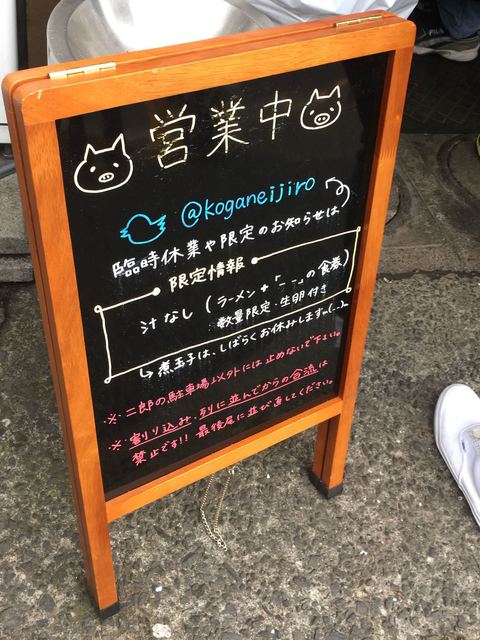 営業中
@koganeijiro
臨時休業や限定のお知らせは
限定情報
汁なし (ラーメン+「--」の食券)
数量限定・生卵付き
↳煮玉子は、しばらくお休みします。(..)。
※・二郎の駐車場以外には止めないで下さい。
※・割り込み・列に並んでからの合流は
禁止です!! 最後尾に並び直してください。